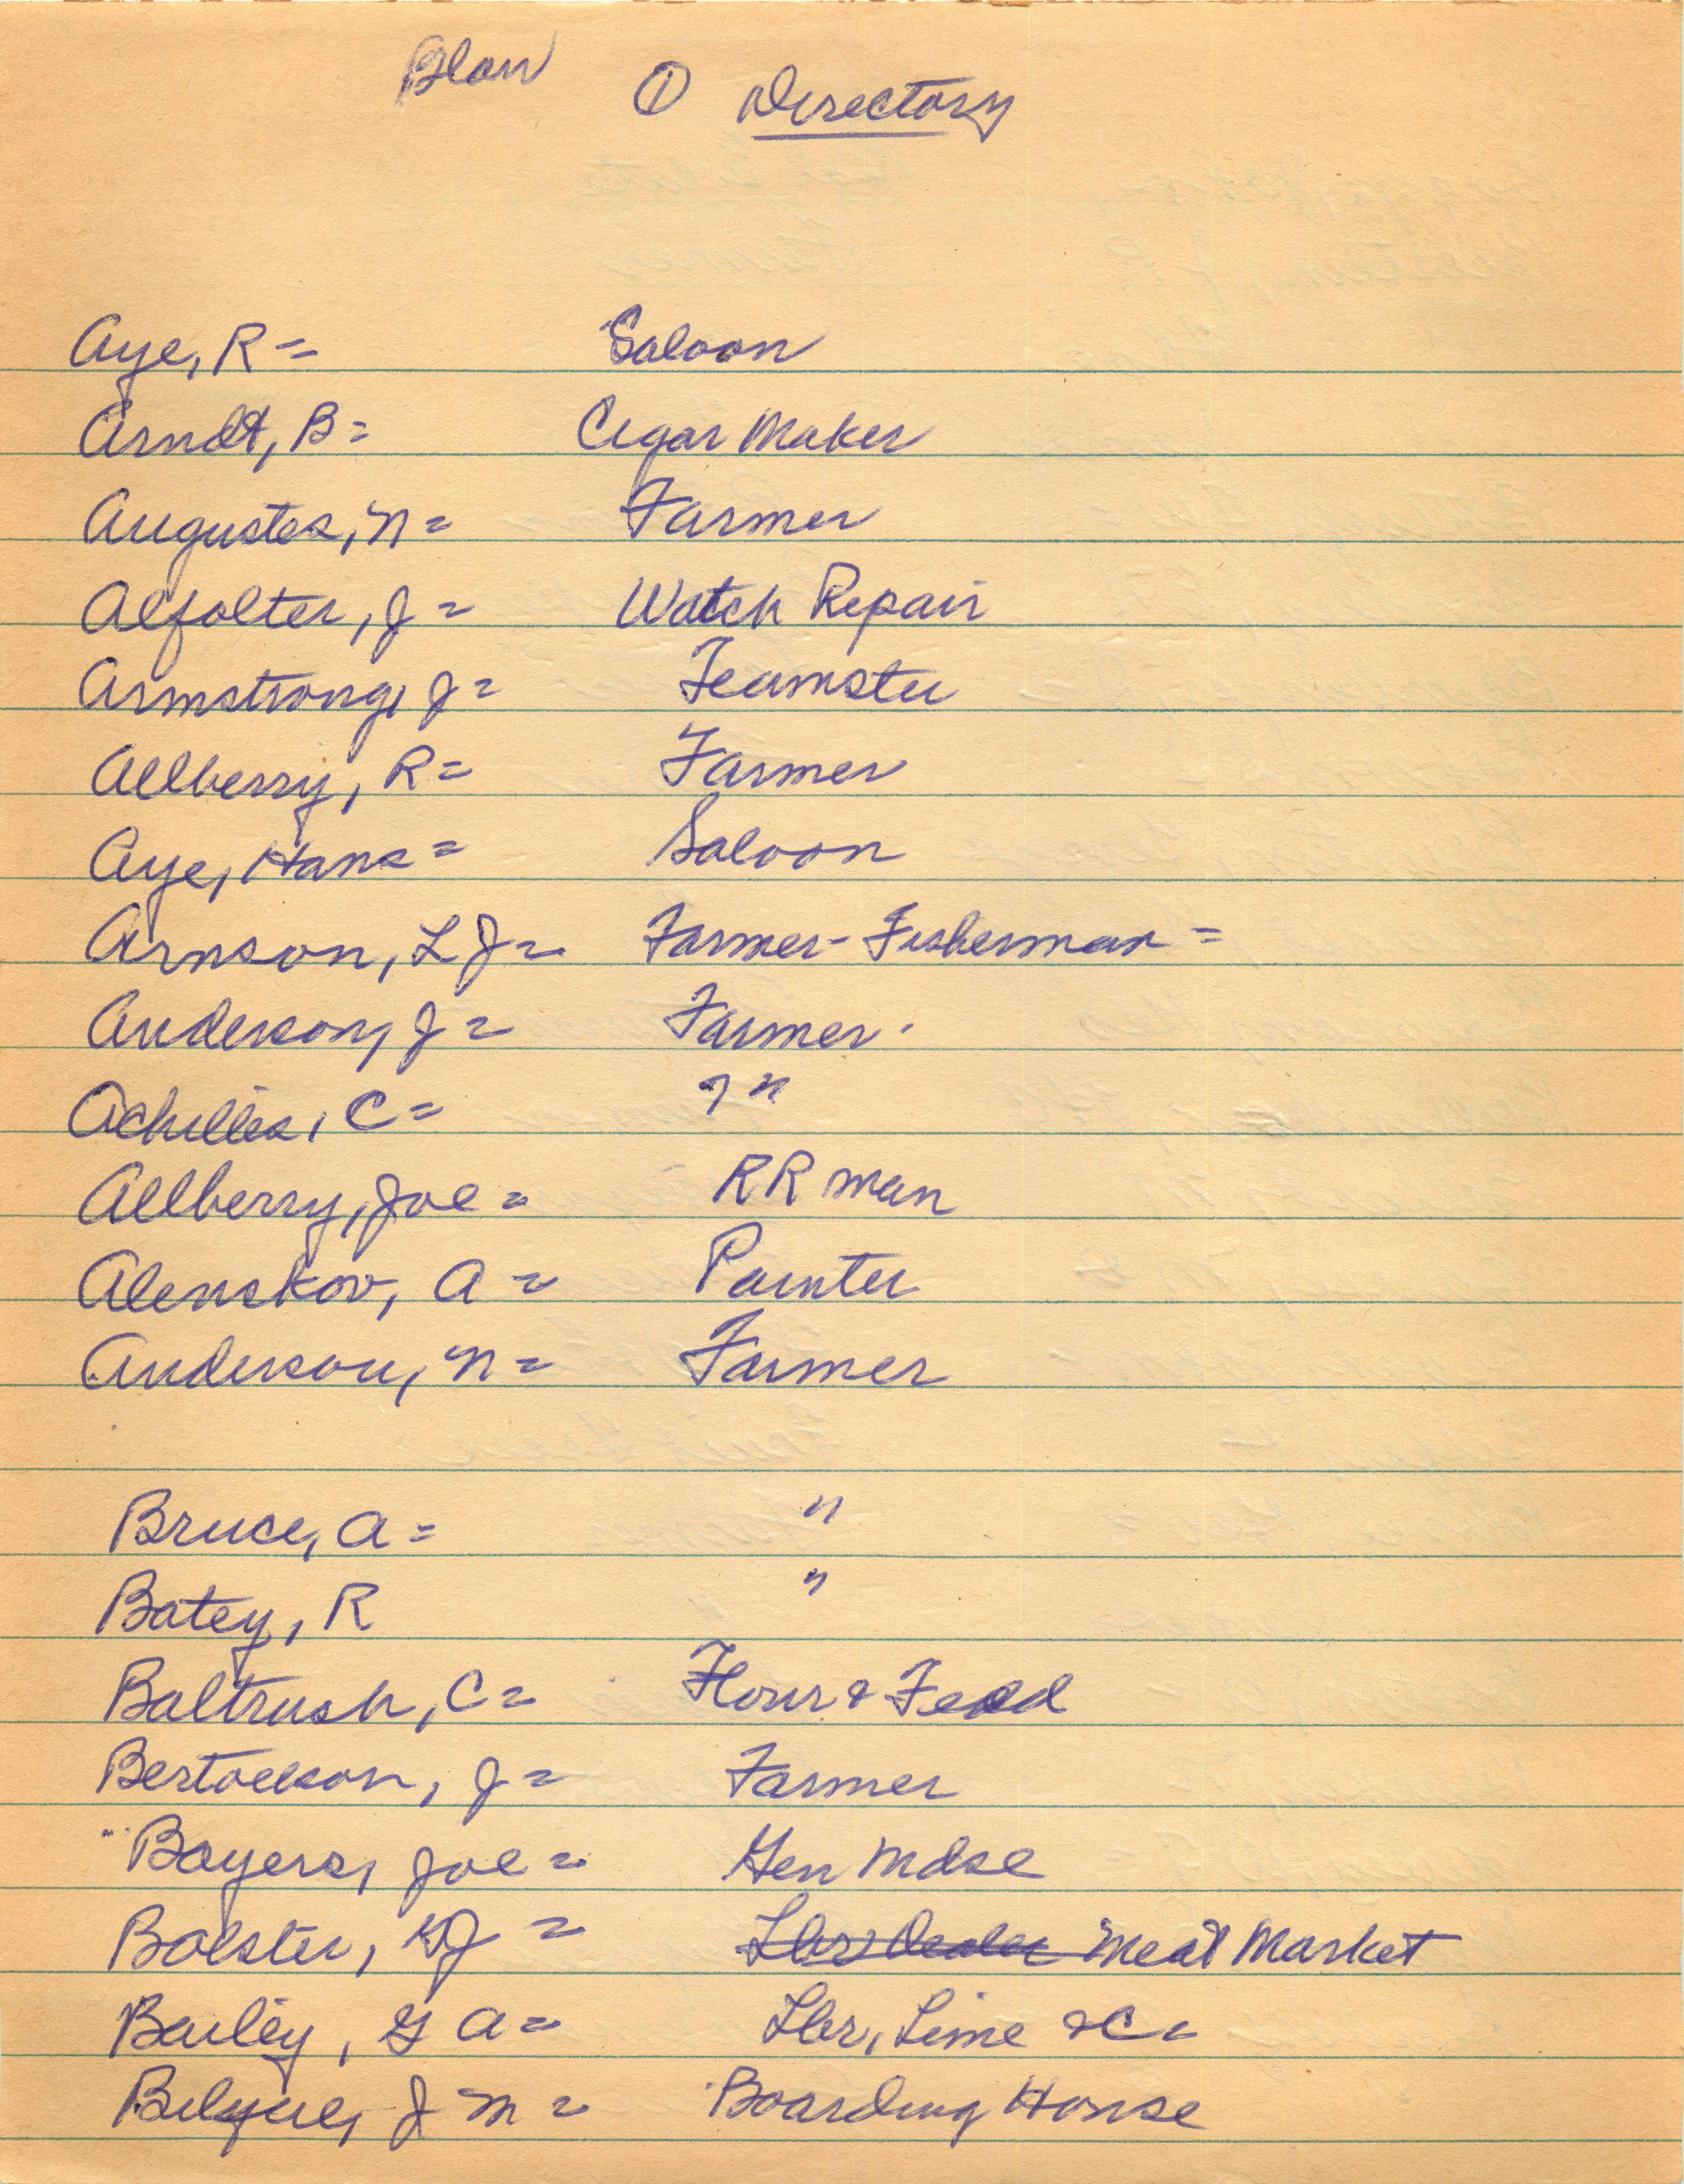 Blair
① Directory
Aye, R = Saloon
Arndt, B = Cigar Maker
Augustes, N = Farmer
Alfolter, J = Watch Repair
Armstrong, J = Teamster
Allberry, R = Farmer
Aye, Hans = Saloon
Arnson, L J = Farmer - Fisherman =
Anderson, J = Farmer.
Achilles, C = " "
Allberry, Joe = RR man
Alenskov, A = Painter
Anderson, N = Farmer
Bruce, A = "
Batey, R "
Baltrush, C = Flour & Feed
Bertoelson, J = Farmer
Boyers, Joe = Gen Mdse
Bolster, J = Lbr Dealer Meat Market
Bailey, G A = Lbr, Lime &c =
Bilyeu, J M = Boarding House